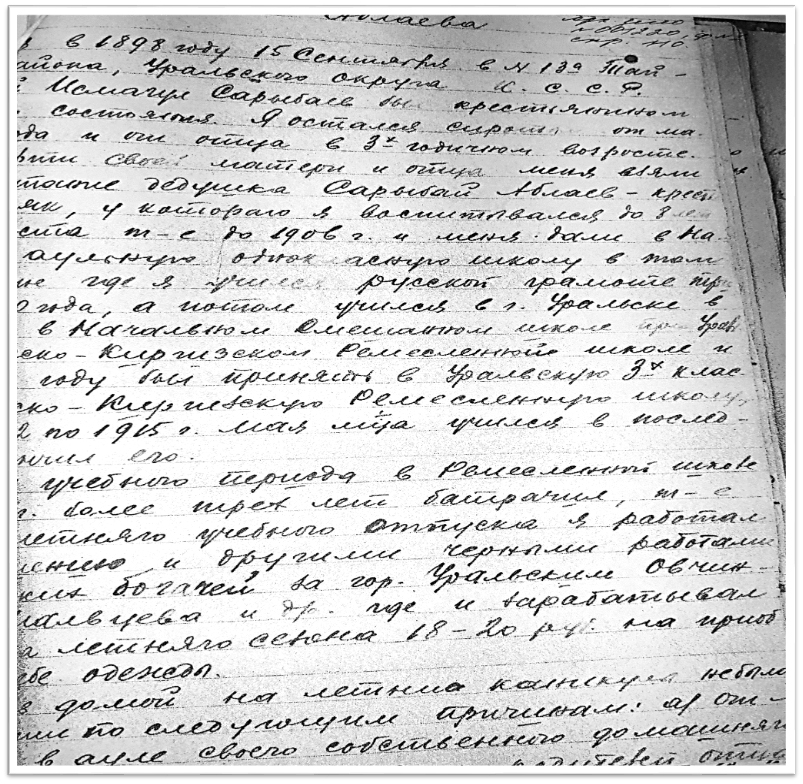 Аблаева
в 1898 году 15 Сентября в № 13 а Тай-
района, Уральского округа К. С. С. Р.
Исмагул Сарыбаев был крестьянином
состояния Я остался сиротой от ма-
и от отца в 3х годичном возросте.
своей матери и отца меня взяли
дедушка Сарыбай Аблаев - крест
як, у котораго я воспитывался до 8 лет
ста т-е до 1906 г. и меня дали в На-
аульную однокласную школу в том
где я учился русской грамоте три
года, а потом учился в г. Уральске в
в Начальном Смешанном школе при Урал
ско-Киргизском Ремесленной школе и
году был принять в Уральскую 3х клас
ско-Киргизскую Ремесленную школу,
по 1915 г. мая м-ца учился в послед-
нчил его.
учебного периода в Ремесленной школе
г. более трех лет батрачил, т-е
летняго учебного отпуска я работал
ению и другими черными работами
ких богачей за гор. Уральским Овчин-
альцева и др. где и зарабатывал
а летняго сезона 18-20 руб. на приоб
ебе одежды.
домой на летние каникулы небыло
по следующим причинам: а) от-
в ауле своего собственного домашняго
родителей отца